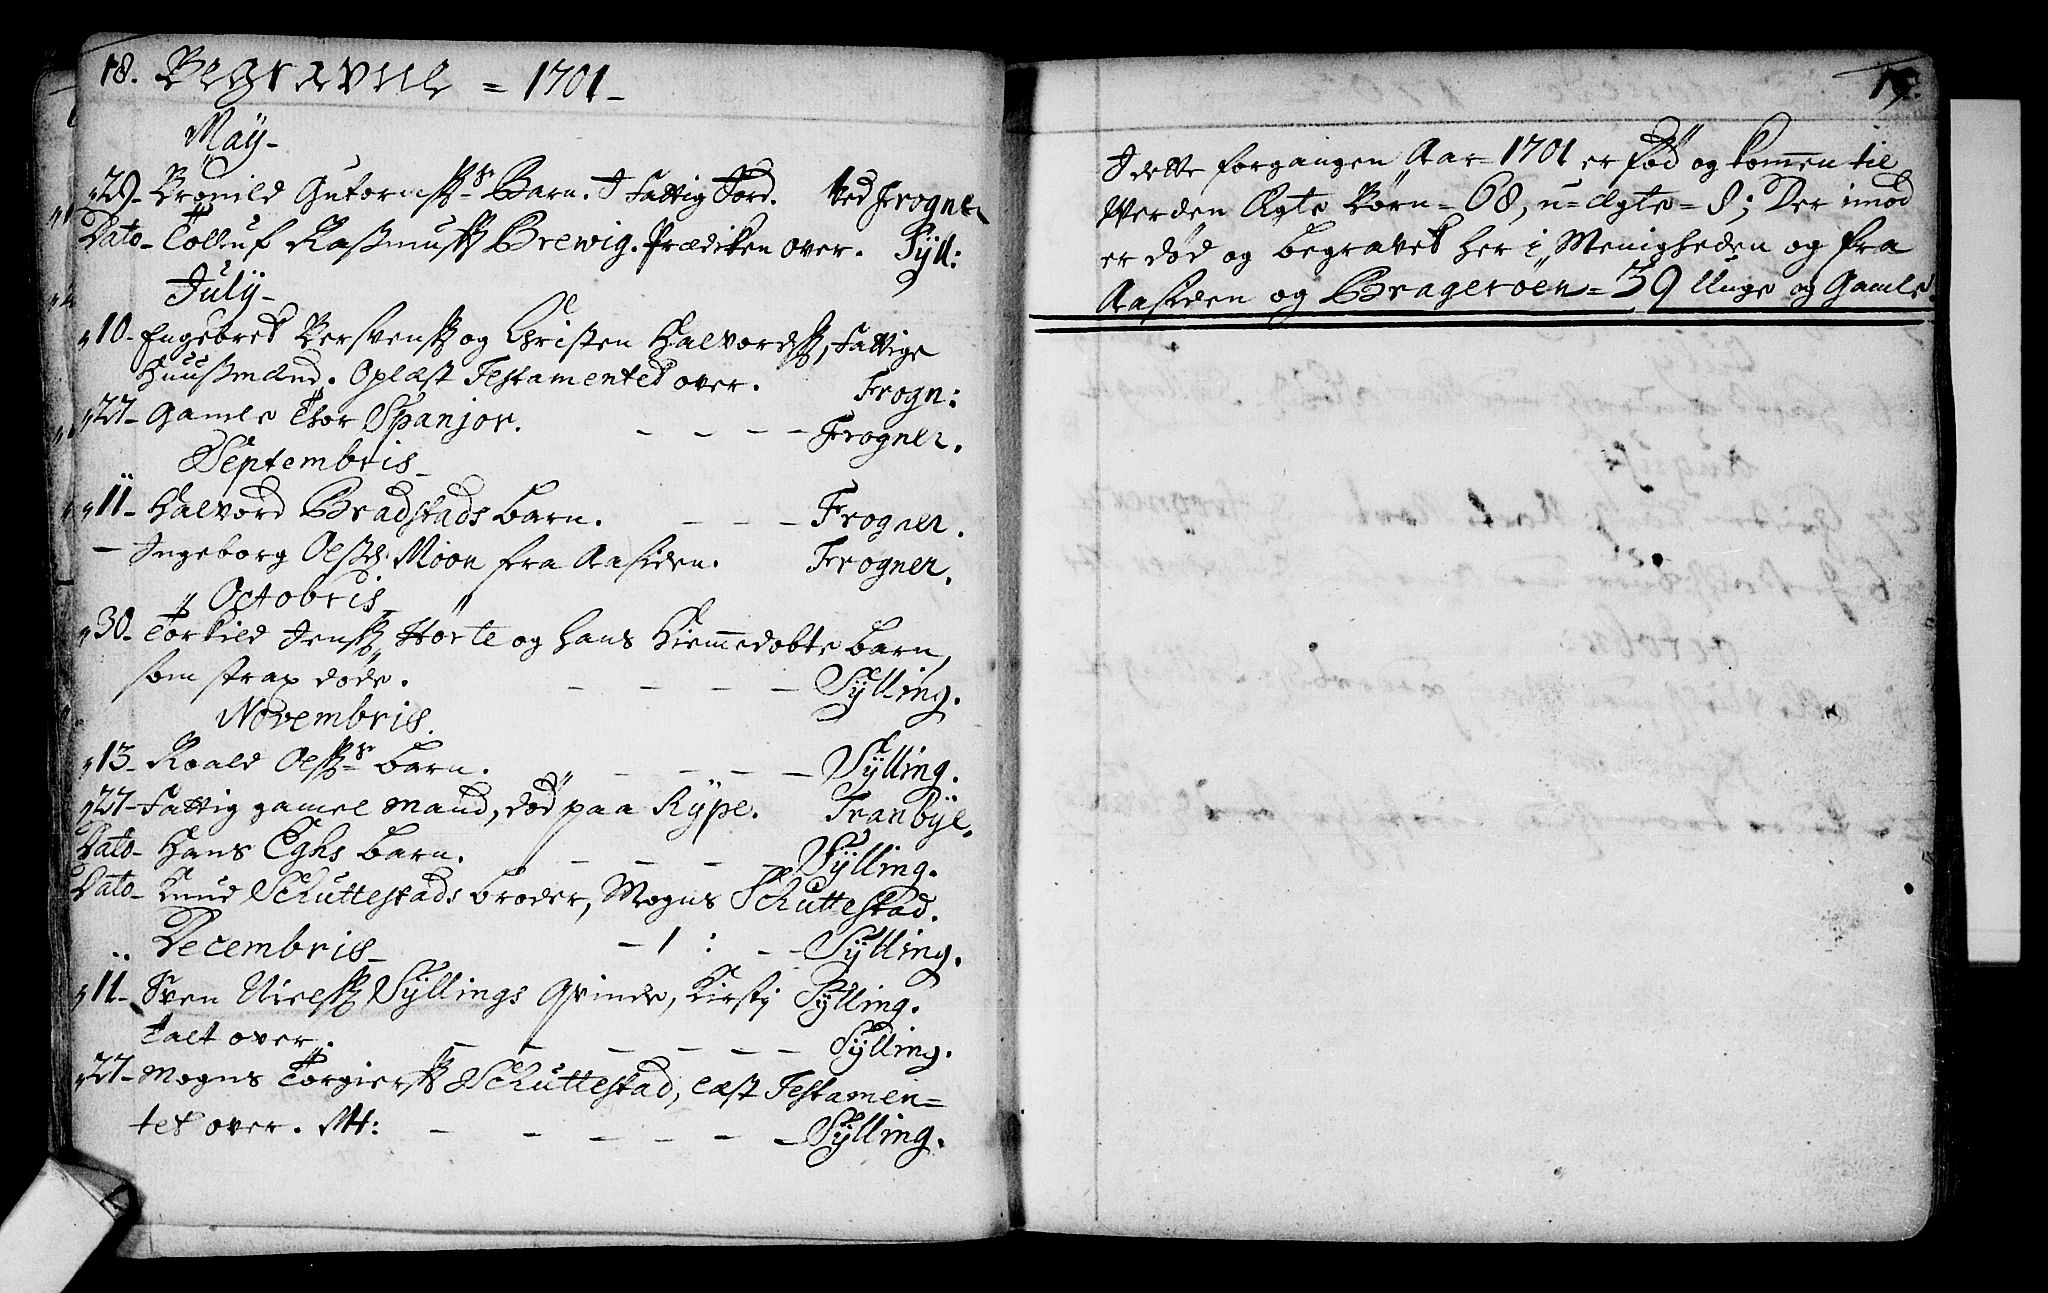 18. Begravne = 1701 _
May _
29 _ Bronild Gutormsß: Barn. I Fattig Jord. Ved Frogner
Dato _ Tolluf Raßmusß Brewig. Prædiken over. Syll:
July _
10 _ Engebret Bersvensß og Christen Halvordsß, Fattige
Huusmænd. Oplæst Testamentet over. Frogn:
27 _ Gamle Thor Spanjor. _ _ _ _ Frogner.
Septembris _
11 _ Halvord Bradstads barn. _ _ _ Frogner.
_ Ingeborg Olsd: Möen fra Aasiden. Frogner.
Octobris _
30 _ Torkild Jensß Hörte og hans Hiemmedöbte barn,
som strax döde. _ _ _ _ Sylling.
Novembris.
13 _ Roald Olsß: barn. _ _ _ _ Sylling.
27 _ Fattig gamel mand, död paa Rype. Tranbye.
Dato _ Hans Eghs barn. _ _ _ _ Sylling.
Dato _ Knud Schuttestads broder, Mogns Schuttestad.
Decembris _ _ 1 : _ _ Sylling.
11 _ Sven Nielsß Syllings Qvinde, Kirsti Sylling.
talt over. _ _ _ _ _ _ Sylling.
27 _ Mogns Torgiersß Schuttestad, læst Testamen=
tet over. M: _ _ _ _ _ Sylling.
19.
I dette forgangen Aar = 1701 er föd og kommen til
Verden Ægte Börn = 68, u=ægte = 8; Der imod
er död og begravet her i Menigheden og fra
Aasiden og Brageröen = 39 Unge og Gamle.